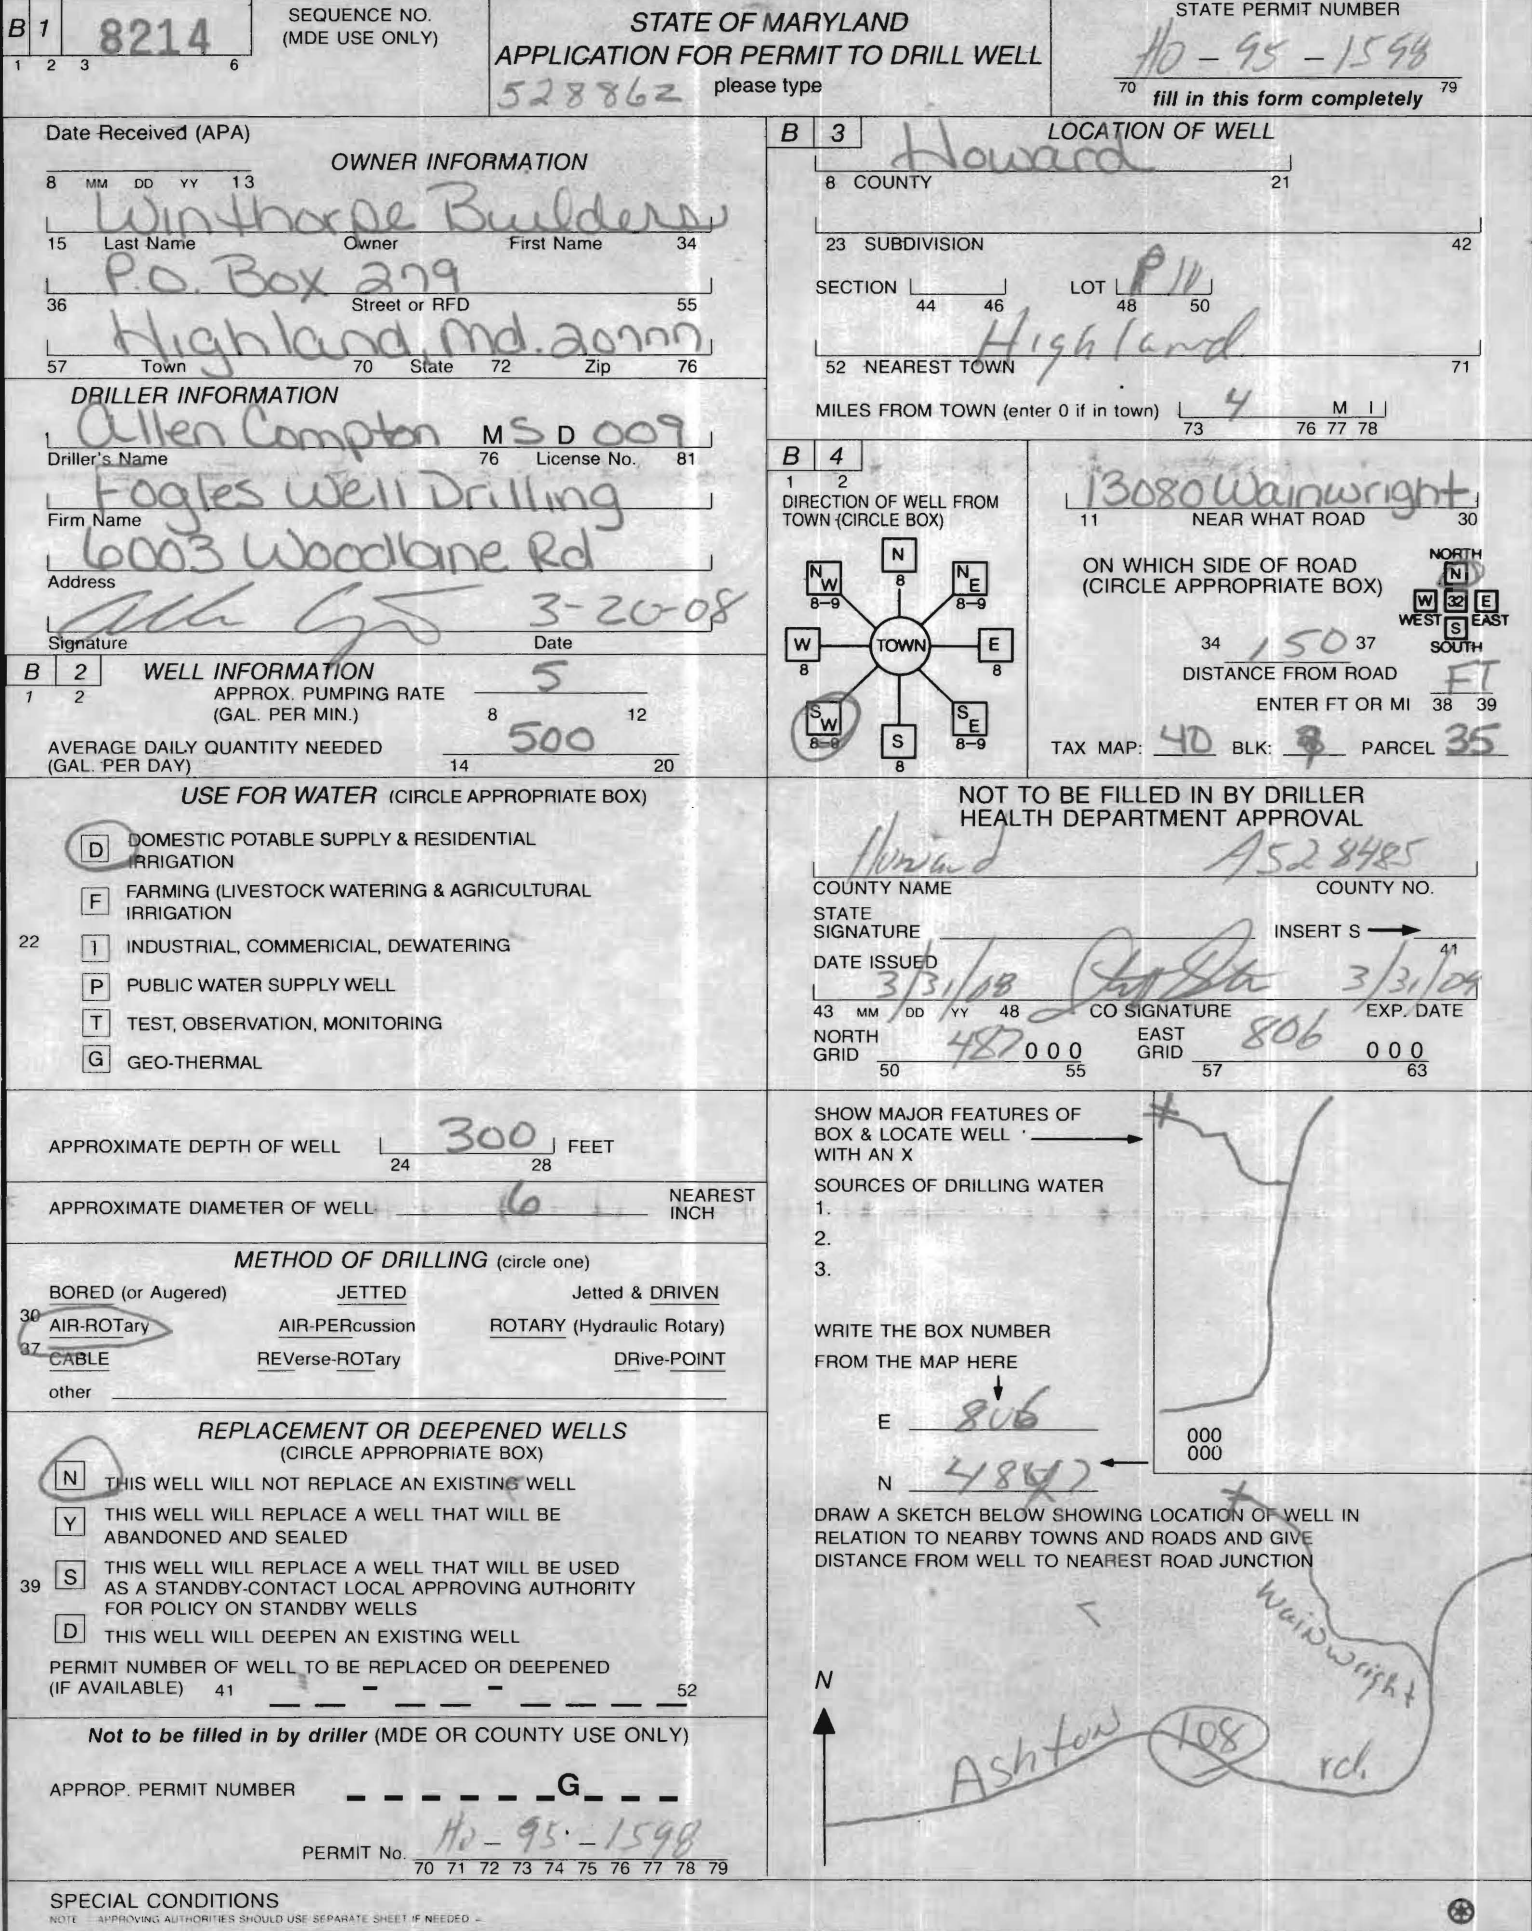 B 1 8214
1 2 3 6
SEQUENCE NO.
(MDE USE ONLY)
STATE OF MARYLAND
APPLICATION FOR PERMIT TO DRILL WELL
528862 please type
STATE PERMIT NUMBER
HO - 95 - 1598
70 79
fill in this form completely
Date Received (APA)
8 MM DD YY 13
OWNER INFORMATION
Winthorpe Builders
15 Last Name Owner First Name 34
P.O. Box 279
36 Street or RFD 55
Highland, Md. 20777
57 Town 70 State 72 Zip 76
DRILLER INFORMATION
Allen Compton M S D 009
Driller's Name 76 License No. 81
Fogles Well Drilling
Firm Name
6003 Woodbine Rd
Address
3-20-08
Signature Date
B 2 WELL INFORMATION
1 2
APPROX. PUMPING RATE 5
(GAL. PER MIN.) 8 12
AVERAGE DAILY QUANTITY NEEDED 500
(GAL. PER DAY) 14 20
USE FOR WATER (CIRCLE APPROPRIATE BOX)
D DOMESTIC POTABLE SUPPLY & RESIDENTIAL
IRRIGATION
F FARMING (LIVESTOCK WATERING & AGRICULTURAL
IRRIGATION
22 I INDUSTRIAL, COMMERICIAL, DEWATERING
P PUBLIC WATER SUPPLY WELL
T TEST, OBSERVATION, MONITORING
G GEO-THERMAL
APPROXIMATE DEPTH OF WELL 300 FEET
24 28
APPROXIMATE DIAMETER OF WELL 6 NEAREST
INCH
METHOD OF DRILLING (circle one)
BORED (or Augered) JETTED Jetted & DRIVEN
30 AIR-ROTary AIR-PERcussion ROTARY (Hydraulic Rotary)
37 CABLE REVerse-ROTary DRive-POINT
other
REPLACEMENT OR DEEPENED WELLS
(CIRCLE APPROPRIATE BOX)
N THIS WELL WILL NOT REPLACE AN EXISTING WELL
Y THIS WELL WILL REPLACE A WELL THAT WILL BE
ABANDONED AND SEALED
39 S THIS WELL WILL REPLACE A WELL THAT WILL BE USED
AS A STANDBY-CONTACT LOCAL APPROVING AUTHORITY
FOR POLICY ON STANDBY WELLS
D THIS WELL WILL DEEPEN AN EXISTING WELL
PERMIT NUMBER OF WELL TO BE REPLACED OR DEEPENED
(IF AVAILABLE) 41 - - 52
Not to be filled in by driller (MDE OR COUNTY USE ONLY)
APPROP. PERMIT NUMBER G
PERMIT No. HO - 95 - 1598
70 71 72 73 74 75 76 77 78 79
SPECIAL CONDITIONS
NOTE APPROVING AUTHORITIES SHOULD USE SEPARATE SHEET IF NEEDED
B 3 LOCATION OF WELL
Howard
8 COUNTY 21
23 SUBDIVISION 42
SECTION LOT
44 46 48 50
Highland
52 NEAREST TOWN 71
MILES FROM TOWN (enter 0 if in town) 4 M I
73 76 77 78
B 4
1 2
DIRECTION OF WELL FROM
TOWN (CIRCLE BOX)
N
8
NW NE
8-9 8-9
W TOWN E
8 8
SW SE
8-9 8-9
S
8
13080 Wainwright
11 NEAR WHAT ROAD 30
ON WHICH SIDE OF ROAD
(CIRCLE APPROPRIATE BOX)
NORTH
N
W 32 E
WEST EAST
S
SOUTH
34 150 37
DISTANCE FROM ROAD FT
ENTER FT OR MI 38 39
TAX MAP: 40 BLK: PARCEL 35
NOT TO BE FILLED IN BY DRILLER
HEALTH DEPARTMENT APPROVAL
Howard A528485
COUNTY NAME COUNTY NO.
STATE
SIGNATURE INSERT S
41
DATE ISSUED
3/31/08 3/31/09
43 MM DD YY 48 CO SIGNATURE EXP. DATE
NORTH
GRID 487 000
50 55
EAST
GRID 806 000
57 63
SHOW MAJOR FEATURES OF
BOX & LOCATE WELL
WITH AN X
SOURCES OF DRILLING WATER
1.
2.
3.
WRITE THE BOX NUMBER
FROM THE MAP HERE
E 806
N
000
000
DRAW A SKETCH BELOW SHOWING LOCATION OF WELL IN
RELATION TO NEARBY TOWNS AND ROADS AND GIVE
DISTANCE FROM WELL TO NEAREST ROAD JUNCTION
Wainwright
N
Ashton 108 rd.